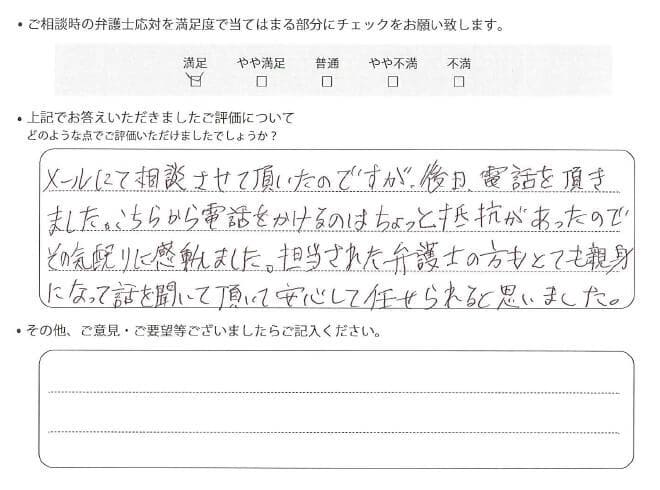 ・ご相談時の弁護士応対を満足度で当てはまる部分にチェックをお願い致します。
満足 やや満足 普通 やや不満 不満
・上記でお答えいただきましたご評価について
どのような点でご評価いただけましたでしょうか？
メールにて相談させて頂いたのですが、後日、電話を頂き
ました。こちらから電話をかけるのはちょっと抵抗があったので
その気配りに感動しました。担当された弁護士の方もとても親身
になって話を聞いて頂いて安心して任せられると思いました。
・その他、ご意見・ご要望等ございましたらご記入ください。